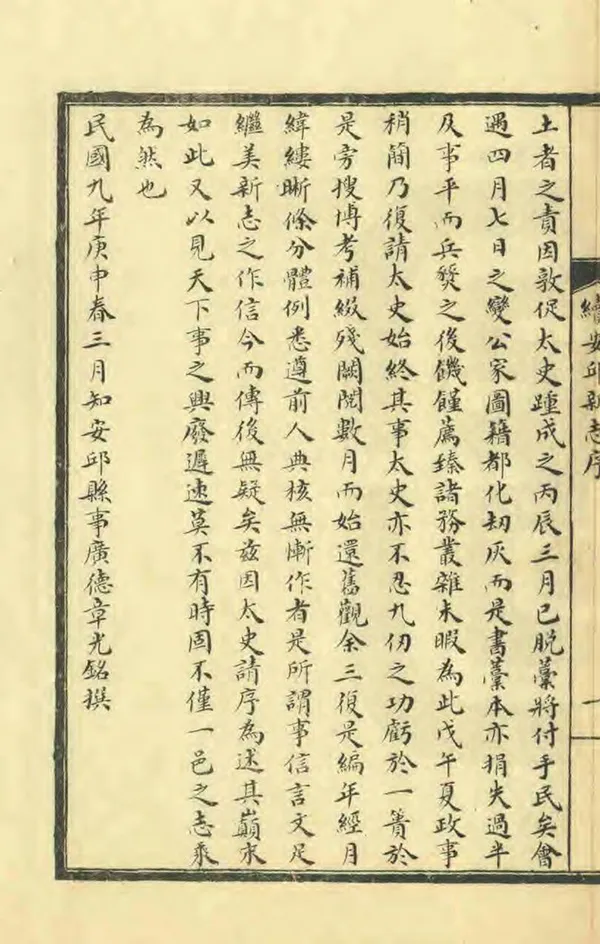 續安邱新志序
一
土者之責因敦促太史踵成之丙辰三月已脫藁將付手民矣會
遇四月七日之變公家圖籍都化刼灰而是書藁本亦捐失過半
及事平而兵燹之後饑饉薦臻諸務叢雜未暇為此戊午夏政事
稍簡乃復請太史始終其事太史亦不忍九仞之功虧於一簣於
是旁搜博考補綴殘闕閱數月而始還舊觀余三復是編年經月
緯縷晰條分體例悉遵前人典核無慚作者是所謂事信言文足
繼美新志之作信今而傳後無疑矣兹因太史請序為述其巔末
如此又以見天下事之興廢遲速莫不有時固不僅一邑之志乘
為然也
民國九年庚申春三月知安邱縣事廣德章光銘撰